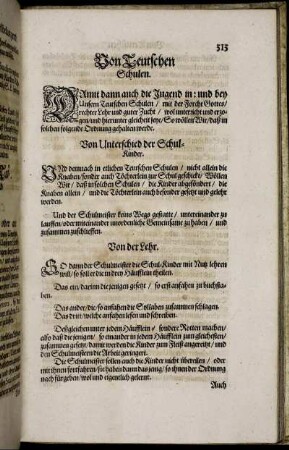 513
Von Teutschen
Schulen.
Wannt dann auch die Jugend in: und bey
Unsern Teutschen Schulen / mit der Forcht Gottes/
rechter Lehr und guter Zucht / wol unterricht und erzo-
gen/ und hierunter gleichheit
solchen folgende Ordnung gehalten werde.
Von Unterschied der Schul-
Kinder.
Und demnach in etlichen Teutschen Schulen / nicht allein die
Knaben/ sonder auch Töchterlein zur Schul geschickt/ Wöllen
Wir / daß in solchen Schulen / die Kinder abgesöndert / die
Knaben allein / und die Töchterlein auch besonder gesetzt und gelehrt
werden.
Und der Schulmeister keins Wegs gestatte / untereinander zu
lauffen/ oder miteinander unordenliche Gemeinsame zu haben / und
zusammen zuschlieffen.
Von der Lehr.
So dann der Schulmeister die Schul-Kinder mit Nutz lehren
will/ so soll er die in drey Häufflein theilen.
Das ein/ darinn diejenigen gesetzt / so erst anfahen zu buchsta-
ben.
Das ander/ die/ so anfahen die Syllaben zusammen schlagen.
Das dritt/ welche anfahen lesen und schreiben.
Deßgleichen unter jedem Häufflein / sondere Rotten machen/
also daß diejenigen / so einander in jedem Häufflein zum gleichsten/
zusammen gesetzt/ damit werden die Kinder zum Fleiß angereitzt / und
den Schulmeistern die Arbeit geringert.
Die Schulmeister sollen auch die Kinder nicht übereilen / oder
mit ihnen fortfahren/ sie haben dann das jenig/ so ihnen der Ordnung
nach fürgeben / wol und eigentlich gelernt.
Auch